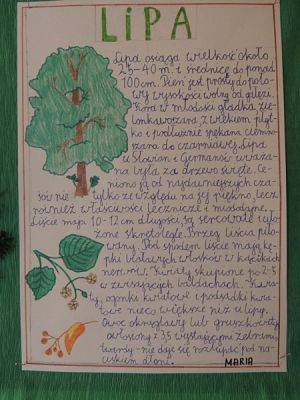 LIPA
Lipa osiąga wielkość około
25-40 m. i średnicę do ponad
100 cm. Pień jest prosty do poło-
wy wysokości wolny od gałęzi.
Kora w młodości gładka, zie-
lonkawoszara, z wiekiem płyt-
ko i podłużnie spękana ciemno-
szara do czarniawej. Lipa
u Słowian i Germanów uważa-
na była za drzewo święte. Ce-
niono ją od najdawniejszych cza-
sów nie tylko ze względu na jej piękno, lecz
również właściwości lecznicze i miododajne.
Liście mają 10-12 cm długości, są sercowate i uło-
żone skrętolegle. Brzeg liścia piło-
wany. Pod spodem liście mają kę-
pki białawych włosków w kącikach
nerwów. Kwiaty skupione po 2-5
w zwisających baldachach. Kwia-
ty, ogonki kwiatowe i podsadki kwia-
towe nieco większe niż u lipy.
Owoc okrągławy lub gruszkowaty
owłosiony z 3,5 wystającymi żebrami,
twardy - nie daje się rozłupać pod na-
ciskiem dłoni.
MARIA